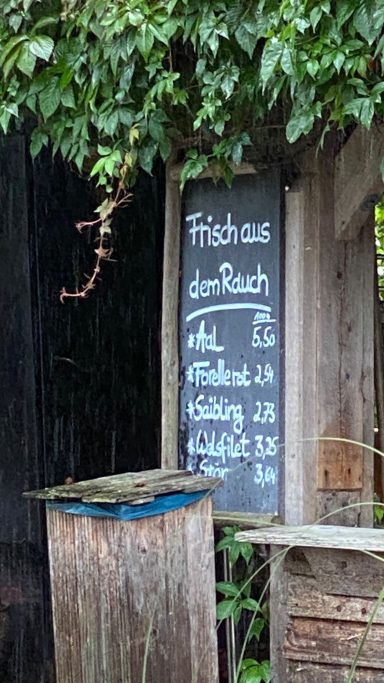 Frisch aus
dem Rauch
100g
*Aal 5,50
*Forelle rot 2,54
*Saibling 2,73
*Welsfilet 3,25
*Stör 3,64